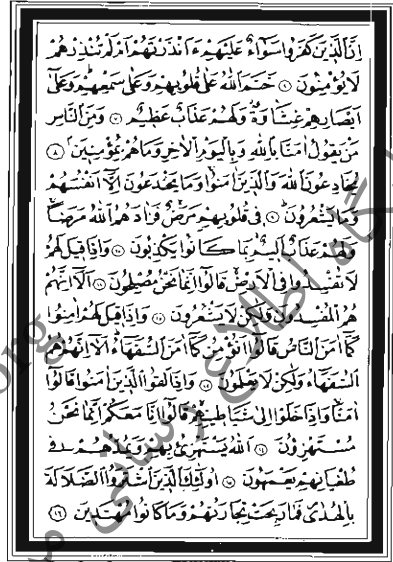 اِنَّ الَّذٖينَ كَفَرُوا سَوَٓاءٌ عَلَيْهِمْ ءَاَنْذَرْتَهُمْ اَمْ لَمْ تُنْذِرْهُمْ
لَا يُؤْمِنُونَ ﴿٦﴾ خَتَمَ اللّٰهُ عَلٰى قُلُوبِهِمْ وَعَلٰى سَمْعِهِمْ وَعَلٰٓى
اَبْصَارِهِمْ غِشَاوَةٌ وَلَهُمْ عَذَابٌ عَظٖيمٌ ﴿٧﴾ وَمِنَ النَّاسِ
مَنْ يَقُولُ اٰمَنَّا بِاللّٰهِ وَبِالْيَوْمِ الْاٰخِرِ وَمَا هُمْ بِمُؤْمِنٖينَ ﴿٨﴾
يُخَادِعُونَ اللّٰهَ وَالَّذٖينَ اٰمَنُوا وَمَا يَخْدَعُونَ اِلَّٓا اَنْفُسَهُمْ
وَمَا يَشْعُرُونَ ﴿٩﴾ فٖى قُلُوبِهِمْ مَرَضٌ فَزَادَهُمُ اللّٰهُ مَرَضًا
وَلَهُمْ عَذَابٌ اَلٖيمٌ بِمَا كَانُوا يَكْذِبُونَ ﴿١٠﴾ وَاِذَا قٖيلَ لَهُمْ
لَا تُفْسِدُوا فِى الْاَرْضِ قَالُٓوا اِنَّمَا نَحْنُ مُصْلِحُونَ ﴿١١﴾ اَلَٓا اِنَّهُمْ
هُمُ الْمُفْسِدُونَ وَلٰكِنْ لَا يَشْعُرُونَ ﴿١٢﴾ وَاِذَا قٖيلَ لَهُمْ اٰمِنُوا
كَمَٓا اٰمَنَ النَّاسُ قَالُٓوا اَنُؤْمِنُ كَمَٓا اٰمَنَ السُّفَهَٓاءُ اَلَٓا اِنَّهُمْ هُمُ
السُّفَهَٓاءُ وَلٰكِنْ لَا يَعْلَمُونَ ﴿١٣﴾ وَاِذَا لَقُوا الَّذٖينَ اٰمَنُوا قَالُٓوا
اٰمَنَّا وَاِذَا خَلَوْا اِلٰى شَيَاطٖينِهِمْ قَالُٓوا اِنَّا مَعَكُمْ اِنَّمَا نَحْنُ
مُسْتَهْزِؤُنَ ﴿١٤﴾ اَللّٰهُ يَسْتَهْزِئُ بِهِمْ وَيَمُدُّهُمْ فٖى
طُغْيَانِهِمْ يَعْمَهُونَ ﴿١٥﴾ اُولٰٓئِكَ الَّذٖينَ اشْتَرَوُا الضَّلَالَةَ
بِالْهُدٰى فَمَا رَبِحَتْ تِجَارَتُهُمْ وَمَا كَانُوا مُهْتَدٖينَ ﴿١٦﴾
اطلاع رسانی
org